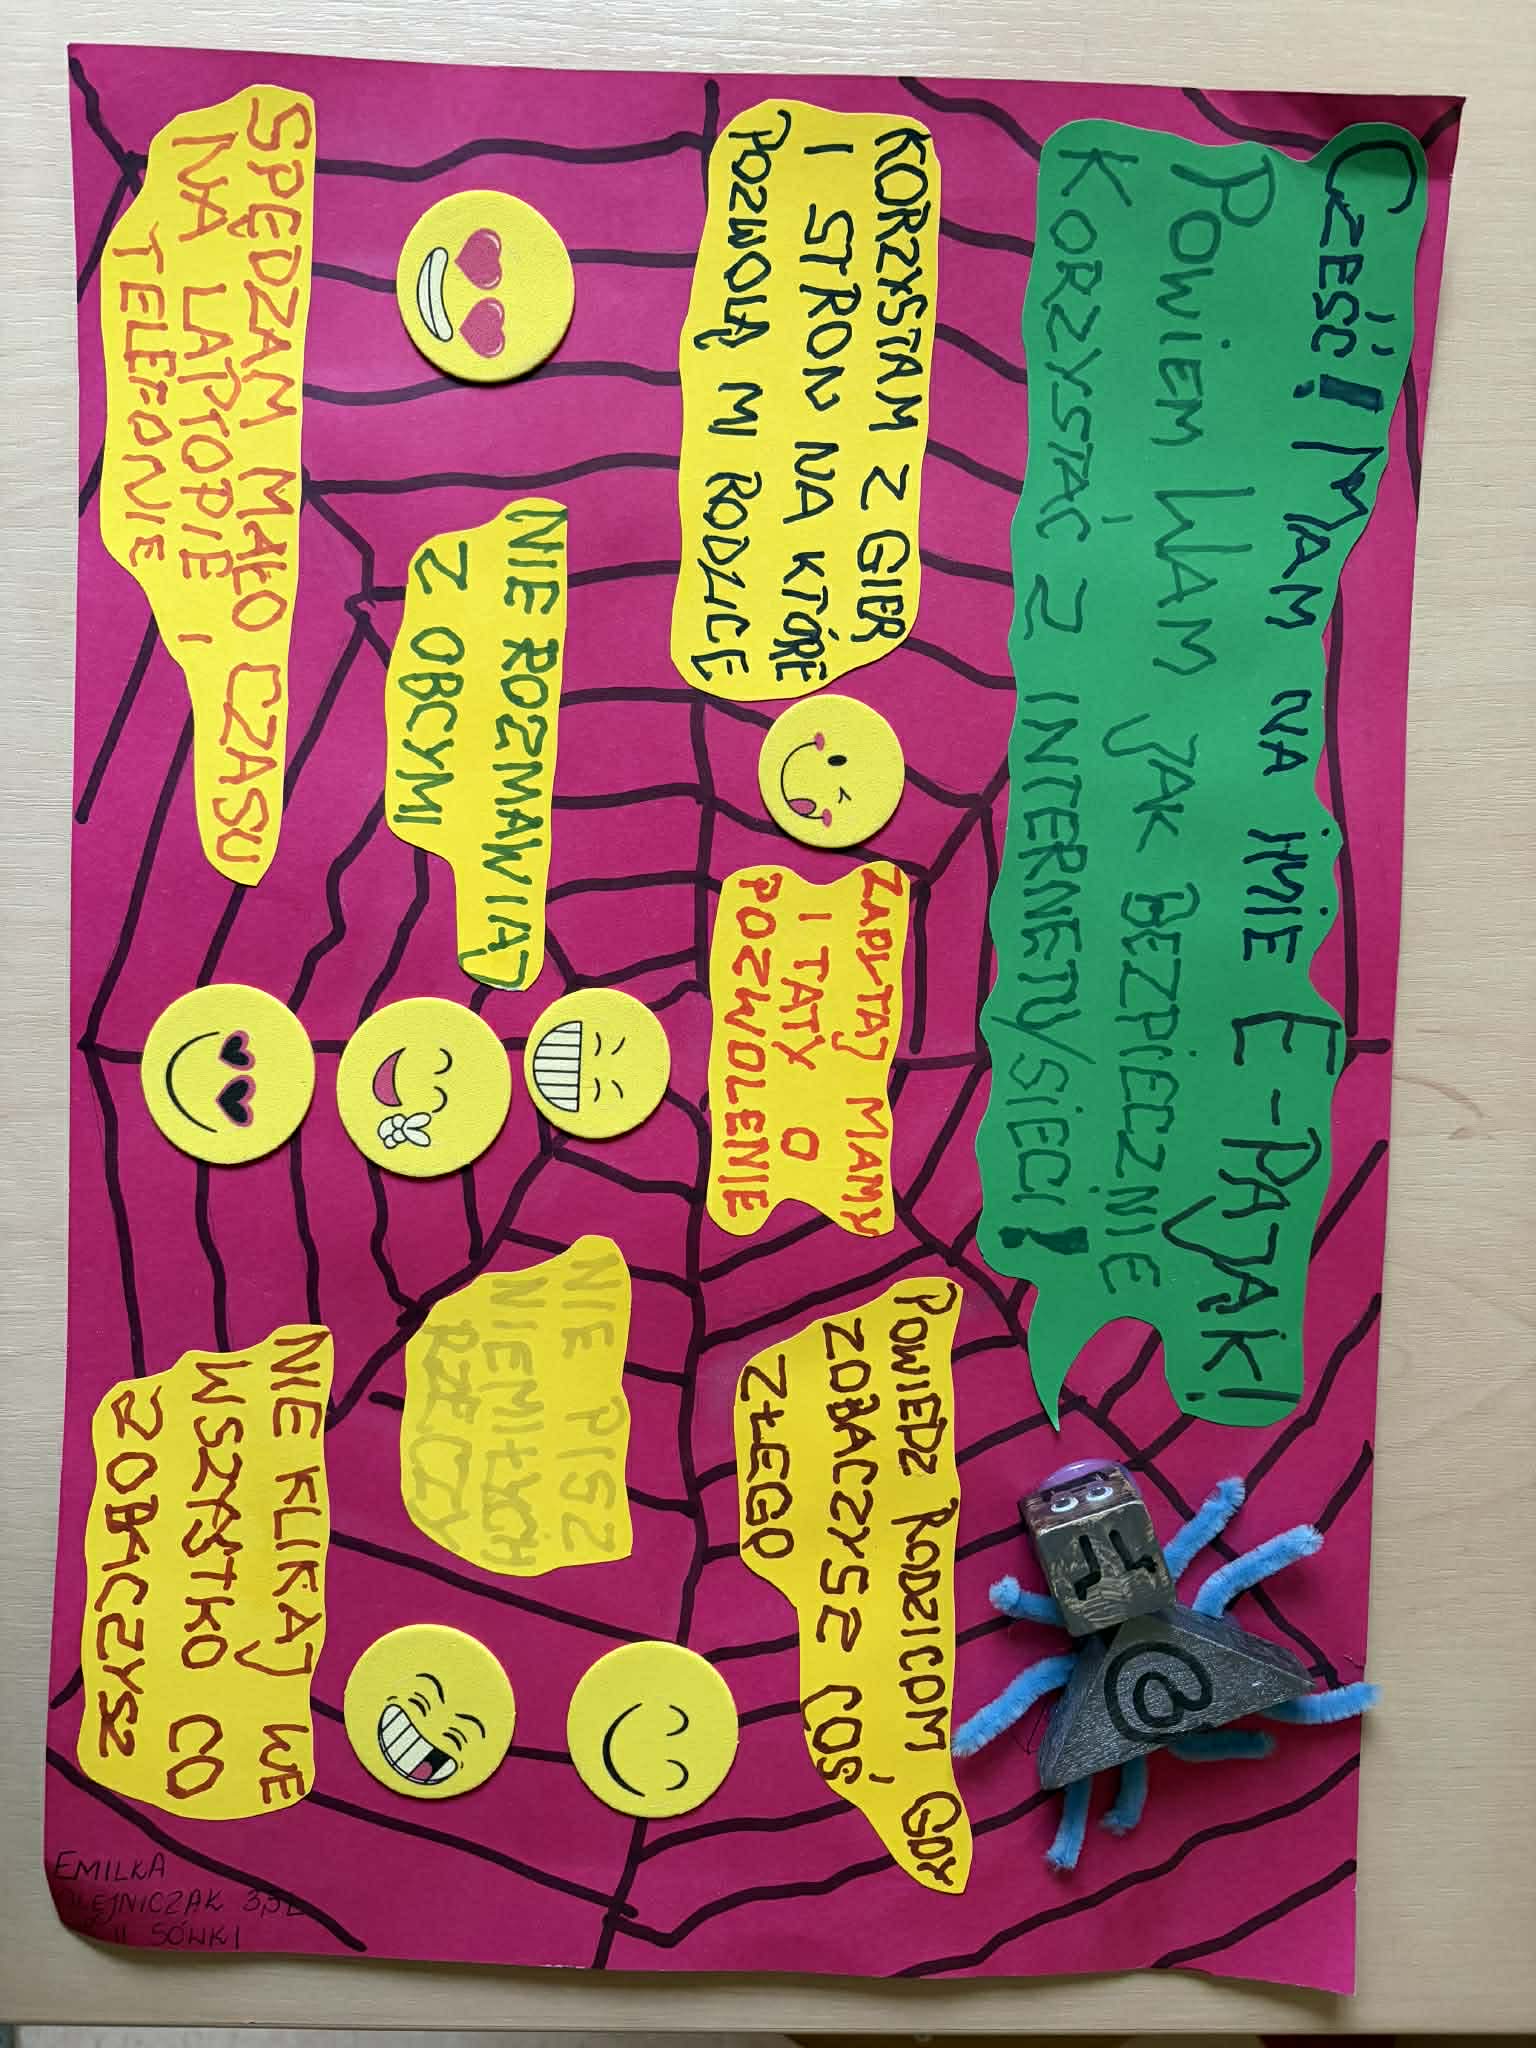 CZEŚĆ! MAM NA IMIE E-PAJĄK!
POWIEM WAM JAK BEZPIECZNIE
KORZYSTAĆ Z INTERNETU/SIECI!
KORZYSTAM Z GIER
I STRON NA KTÓRE
POZWOLĄ MI RODZICE
ZAPYTAJ MAMY
I TATY O
POZWOLENIE
POWIEDZ RODZICOM GDY
ZOBACZYSZ COŚ
ZŁEGO
@
NIE ROZMAWIAJ
Z OBCYMI
NIE PISZ
NIEMIŁYCH
RZECZY
SPĘDZAM MAŁO CZASU
NA LAPTOPIE I
TELEFONIE
NIE KLIKAJ WE
WSZYSTKO CO
ZOBACZYSZ
EMILKA
OLEJNICZAK
II SÓWKI